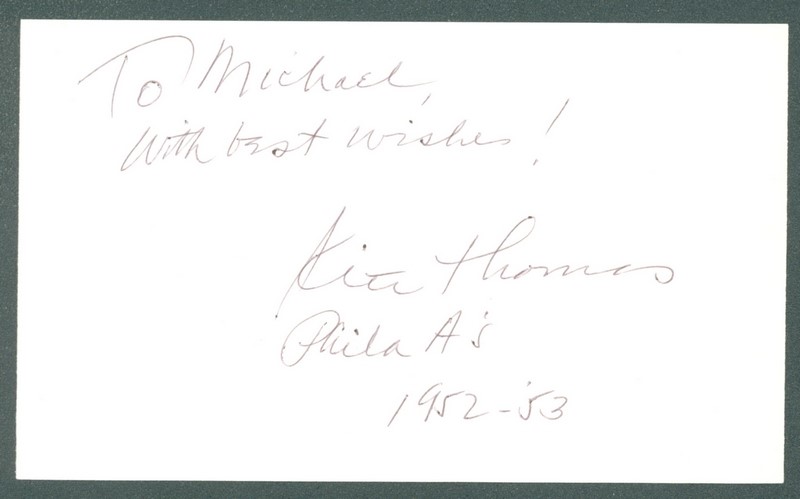 To Michael,
With best wishes!
Kite Thomas
Phila A's
1952-'53